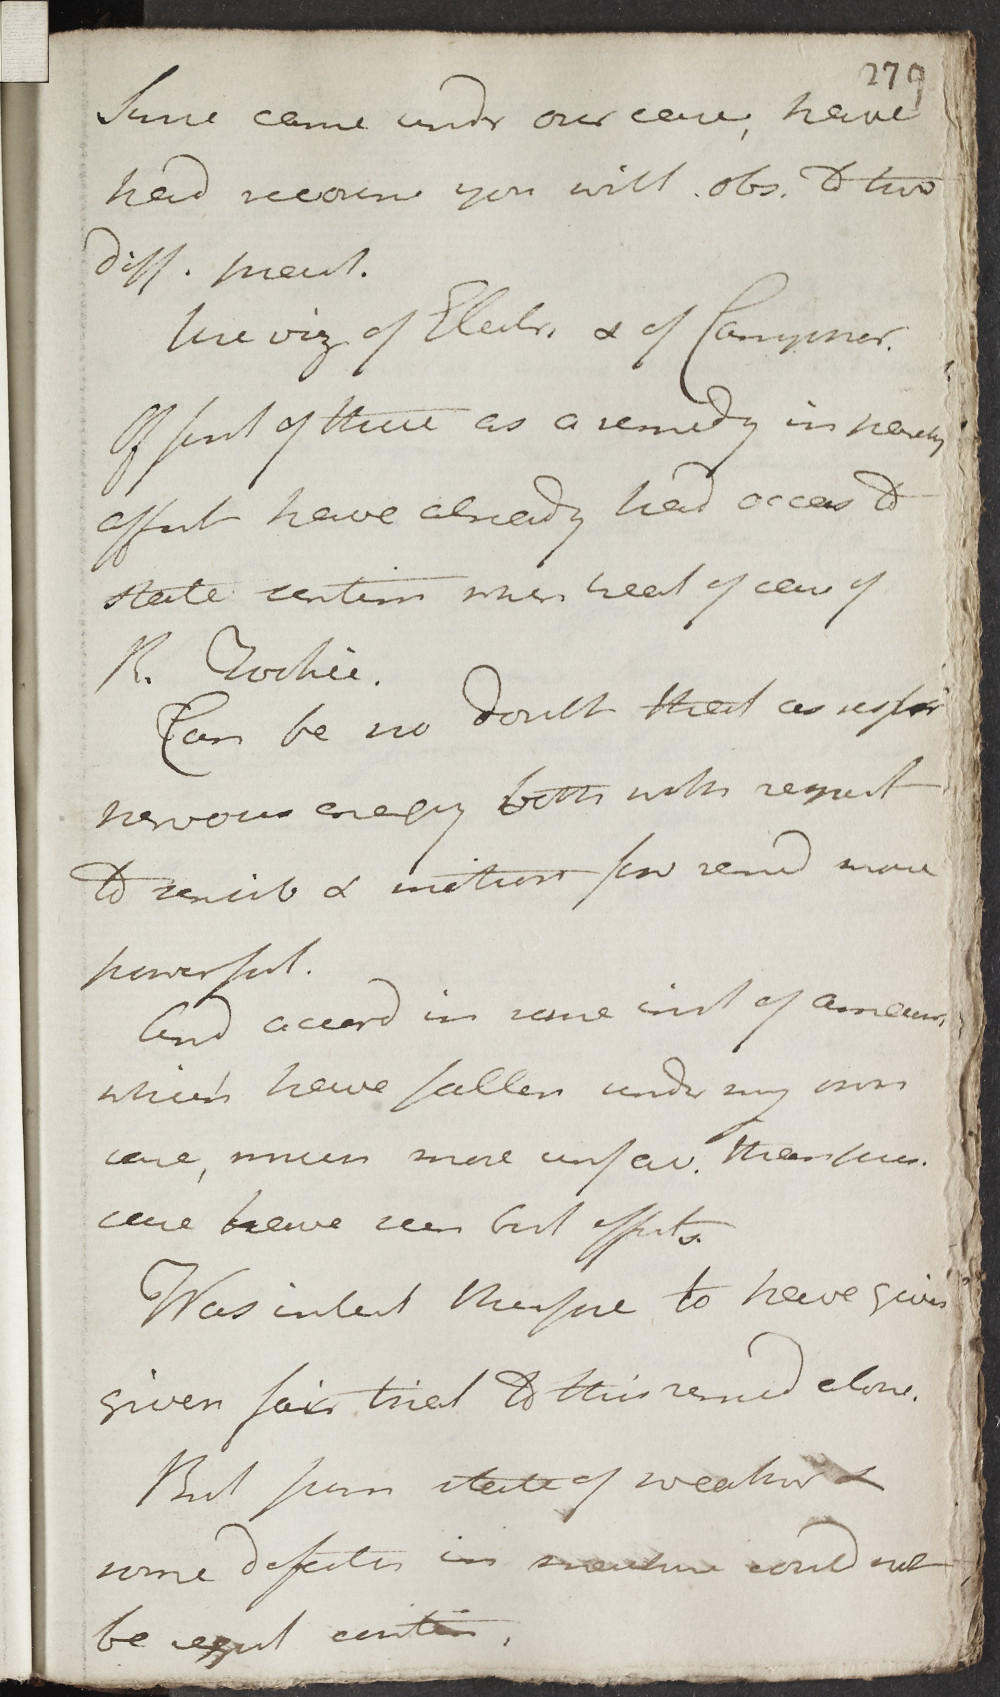 279
Since came under our care, have
had recourse you will obs. to two
diff. meast.
Use viz of Electr. & of Camphor.
Of first of these as a remedy in
affect have already had occas to
state sentim when treat of case of
R.
Can be no doubt that as
nervous energy both with respect
to sensib & motion few remed more
powerful.
And accord in some inst of amauros
which have fallen under my own
care, much more unfav. than pres.
case have seen best effects.
Was intent therefore to have given
given fair trial to this remed alone.
But from state of weather &
some defects in machine could not
be regul contin.